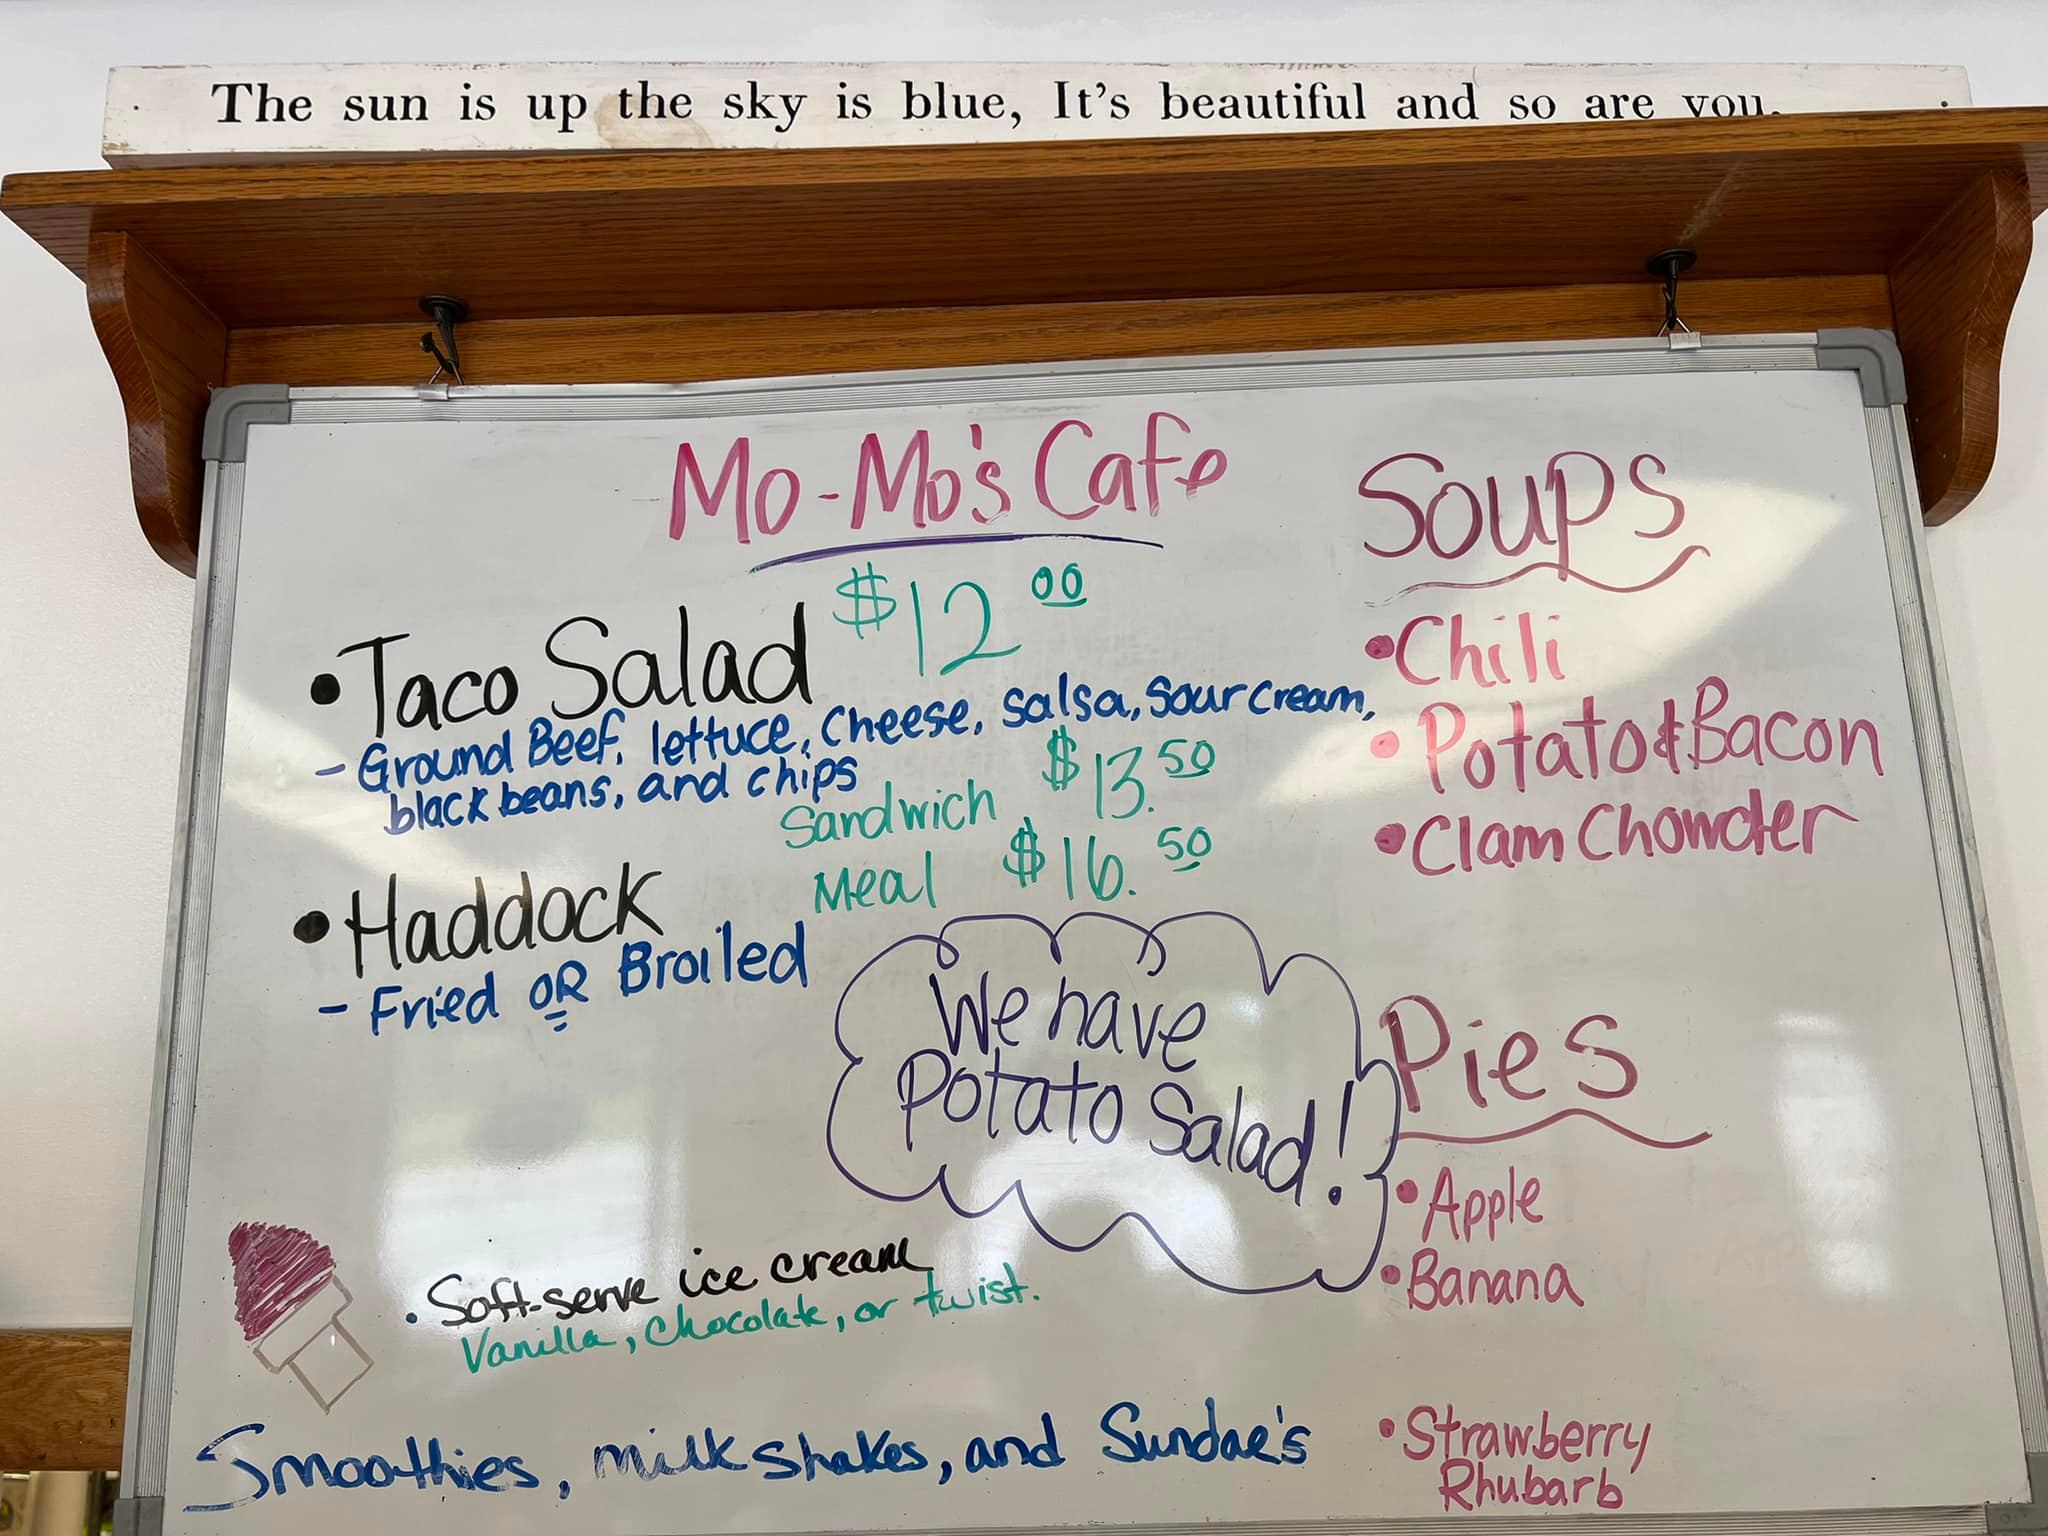 The sun is up the sky is blue, It's beautiful and so are you.
Mo-Mo's Cafe
• Taco Salad $12.00
- Ground Beef, lettuce, cheese, salsa, sour cream,
black beans, and chips
Sandwich $13.50
Meal $16.50
• Haddock
- Fried OR Broiled
We have
Potato Salad!
• Soft-serve ice cream
Vanilla, chocolate, or twist.
Smoothies, milkshakes, and Sundae's
Soups
• Chili
• Potato & Bacon
• Clam Chowder
Pies
• Apple
• Banana
• Strawberry
Rhubarb